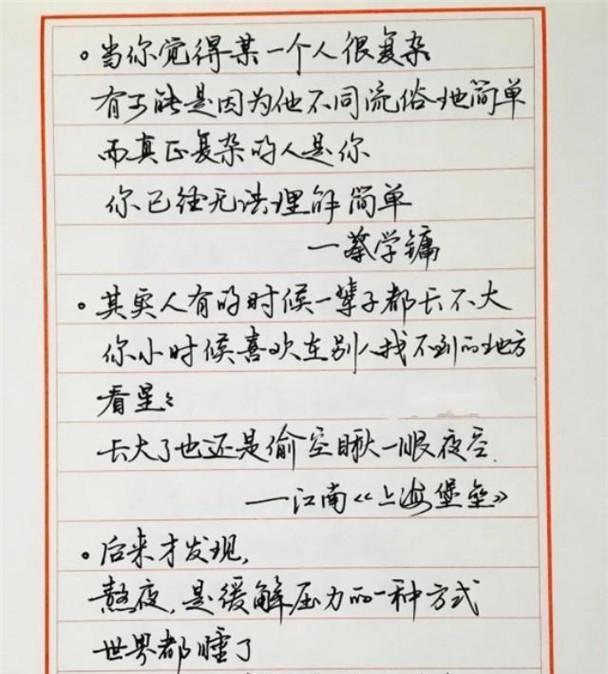 。当你觉得某一个人很复杂
有可能是因为他不同流俗地简单
而真正复杂的人是你
你已经无法理解简单
—蔡学镛
。其实人有的时候一辈子都长不大
你小时候喜欢在别人找不到的地方
看星星
长大了也还是偷空瞅一眼夜空
——江南《上海堡垒》
。后来才发现，
熬夜，是缓解压力的一种方式
世界都睡了